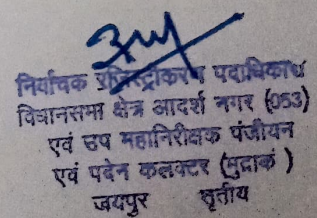 निर्वाचक रजिस्ट्रीकरण पदाधिकारी
विधानसभा क्षेत्र आदर्श नगर (053)
एवं उप महानिरीक्षक पंजीयन
एवं पदेन कलक्टर (मुद्रांक )
जयपुर तृतीय